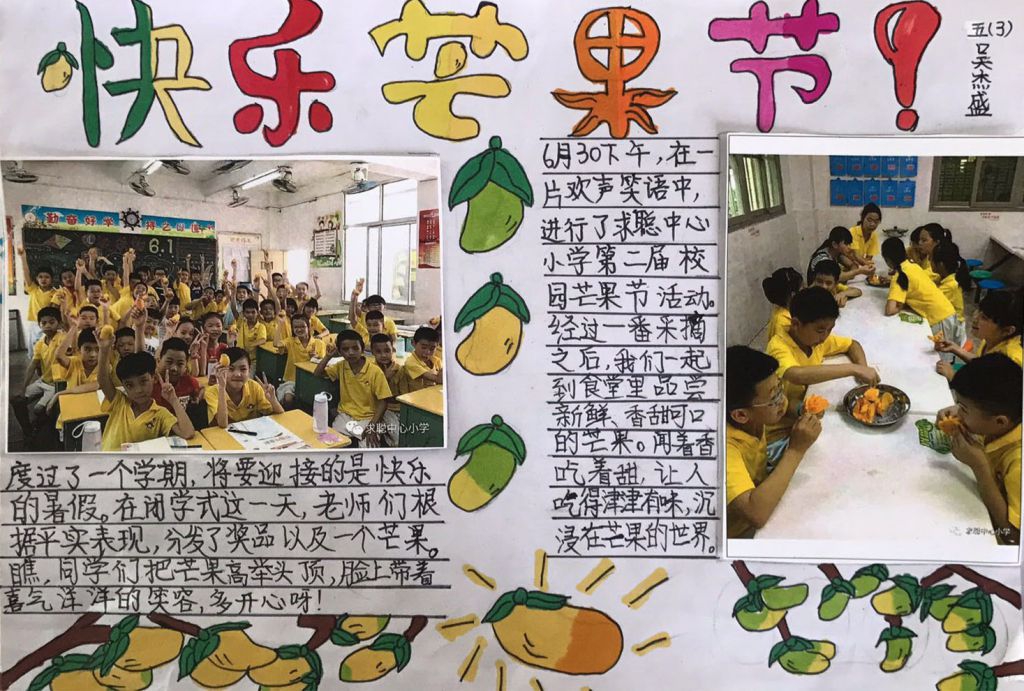 快乐芒果节!
五(3)
吴杰盛
勤奋好学
6.1
求聪中心小学
6月30下午,在一
片欢声笑语中,
进行了求聪中心
小学第二届校
园芒果节活动。
经过一番采摘
之后,我们一起
到食堂里品尝
新鲜、香甜可口
的芒果。闻着香
吃着甜,让人
吃得津津有味,沉
浸在芒果的世界。
求聪中心小学
度过了一个学期,将要迎接的是快乐
的暑假。在闭学式这一天,老师们根
据平实表现,分发了奖品以及一个芒果。
瞧,同学们把芒果高举头顶,脸上带着
喜气洋洋的笑容,多开心呀!